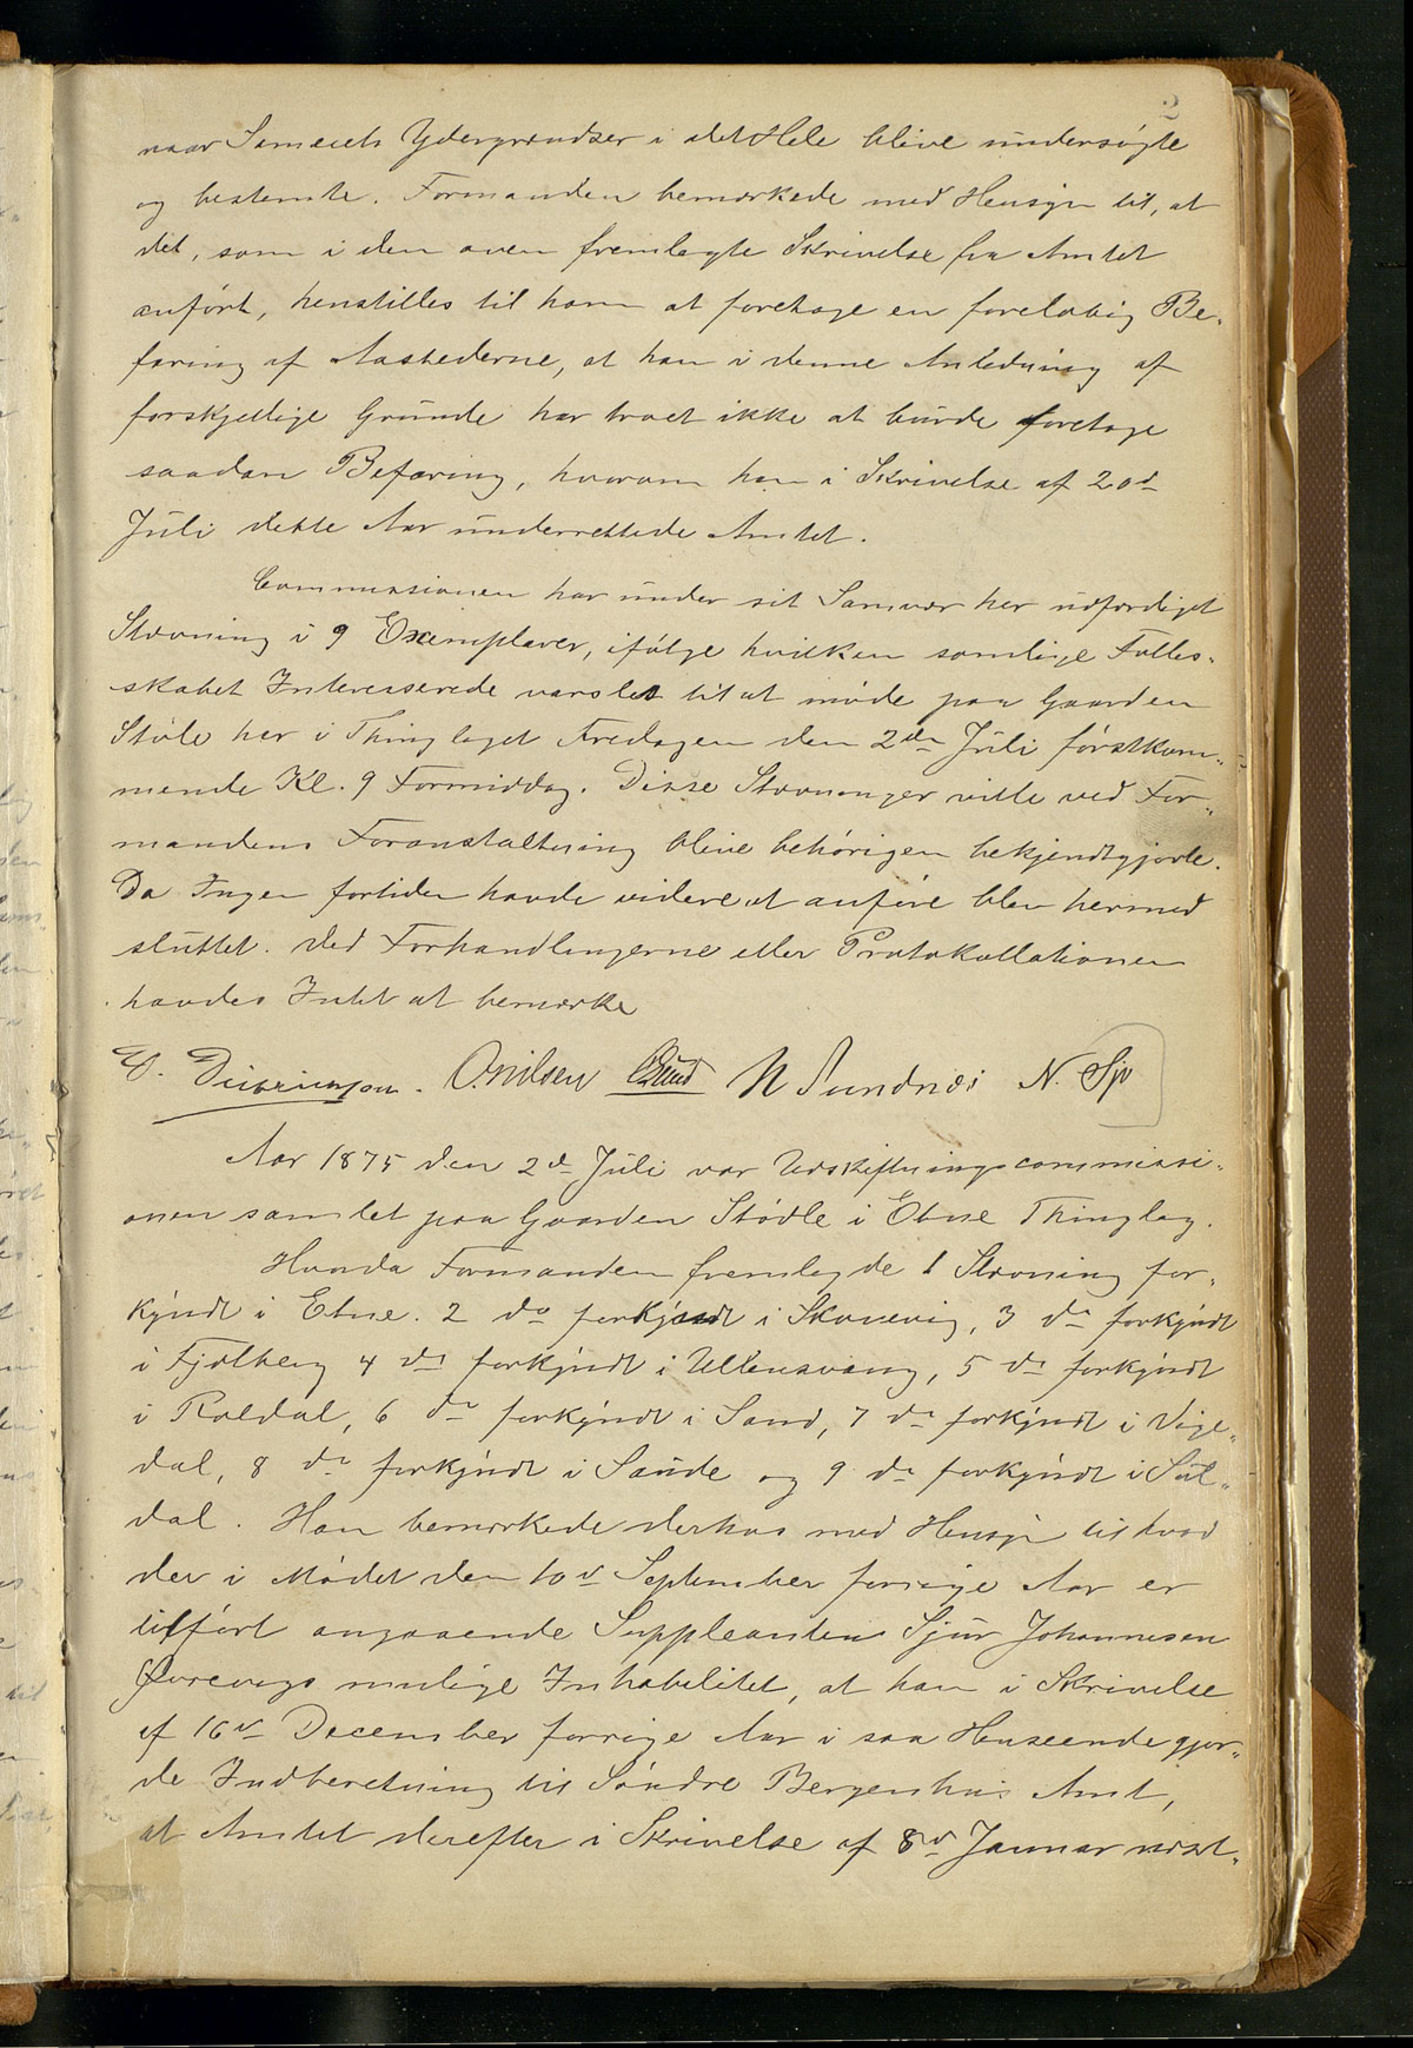 2
naar Sameiets Ydergrændser i det Hele blive undersøgte
og bestemte. Formanden bemærkede med Hensyn til, at
det, som i den oven fremlagte Skrivelse fra Amtet
anført, henstilles til ham at foretage en foreløbig Be-
faring af Aastederne, at han i denne Anledning af
forskjellige Grunde har troet ikke at burde foretage
saadan Befaring, hvorom han i Skrivelse af 20d
Juli dette Aar underrettede Amtet.
Commissionen har under sit Samvær her udfærdiget
Stævning i 9 Exemplarer, ifølge hvilken samtlige Fælles-
skabet Interesserede varsles til at møde paa Gaarden
Støle her i Thinglaget Fredagen den 2den Juli førstkom-
mende Kl. 9 Formiddag. Disse Stævninger ville ved For-
mandens Foranstaltning blive behørigen bekjendtgjorte.
Da Ingen fortiden havde videre at anføre blev hermed
sluttet. Ved Forhandlingerne eller Protokollationen
havdes Intet at bemærke
O. Nilsen N Sundnæs N. Sjo
Aar 1875 den 2d Juli var Udskiftningscommissi-
onen samlet paa Gaarden Stødle i Etne Thinglag.
Hvorda Formanden fremlagde 1 Stævning for-
kyndt i Etne. 2 do forkyndt i Skonevig, 3 do forkyndt
i Fjelberg 4 do forkyndt i Ullensvang, 5 do forkyndt
i Røldal, 6 do forkyndt i Sand, 7 do forkyndt i Vige-
dal, 8 do forkyndt i Saude og 9 do forkyndt i Sul-
dal. Han bemærkede derhos med Hensyn til hvad
der i Mødet den 10d September forrige Aar er
tilført angaaende Suppleanten Sjur Johannesen
mulige Inhabilitet, at han i Skrivelse
af 16d December forrige Aar i saa Henseende gjor-
de Indberetning til Søndre Bergenhus Amt,
at Amtet derefter i Skrivelse af 8d Januar næst-